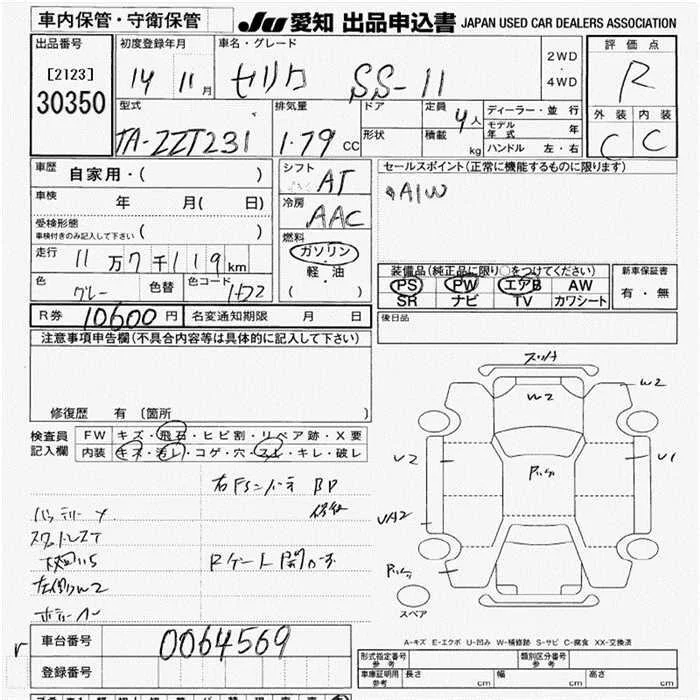 車内保管・守衛保管
JU 愛知 出品申込書 JAPAN USED CAR DEALERS ASSOCIATION
出品番号
[2123]
30350
初度登録年月
14 11 月
車名・グレード
セリカ SS-II
2WD
・
4WD
評価点
R
外装 内装
C C
型式
TA-ZZT231
排気量
1.79 CC
ドア
形状
定員
4人
積載
kg
ディーラー・並行
モデル年式 年
ハンドル 左・右
車歴
自家用・( )
車検
年 月( 日)
受検形態
車検付きのみ記入して下さい ( )
走行
11万7千119km
色
グレー
色替
色コード
シフト
AT
冷房
AAC
燃料
ガソリン
・
軽・油
( )
セールスポイント(正常に機能するものに限ります)
A/W
装備品(純正品に限り○をつけてください)
PS PW エアB AW
SR ナビ TV カワシート
新車保証書
有・無
R券 10600円
名変通知期限 月 日
後日品
注意事項申告欄(不具合内容等は具体的に記入して下さい)
修復歴 有 〔箇所 〕
検査員
記入欄
FW キズ・飛石・ヒビ割・リペア跡・X要
内装 キズ・汚レ・コゲ・穴・スレ・キレ・破レ
右Fインパネ
バッテリー
Rゲート
左側W2
W2
W2
V2
V1
VA2
スペア
A-キズ E-エクボ U-凹み W-補修跡 S-サビ C-腐食 XX-交換済
車台番号
0064569
登録番号
形式指定番号
参考
類別区分番号
参考
車庫証明用
参考
長さ cm
幅 cm
高さ cm